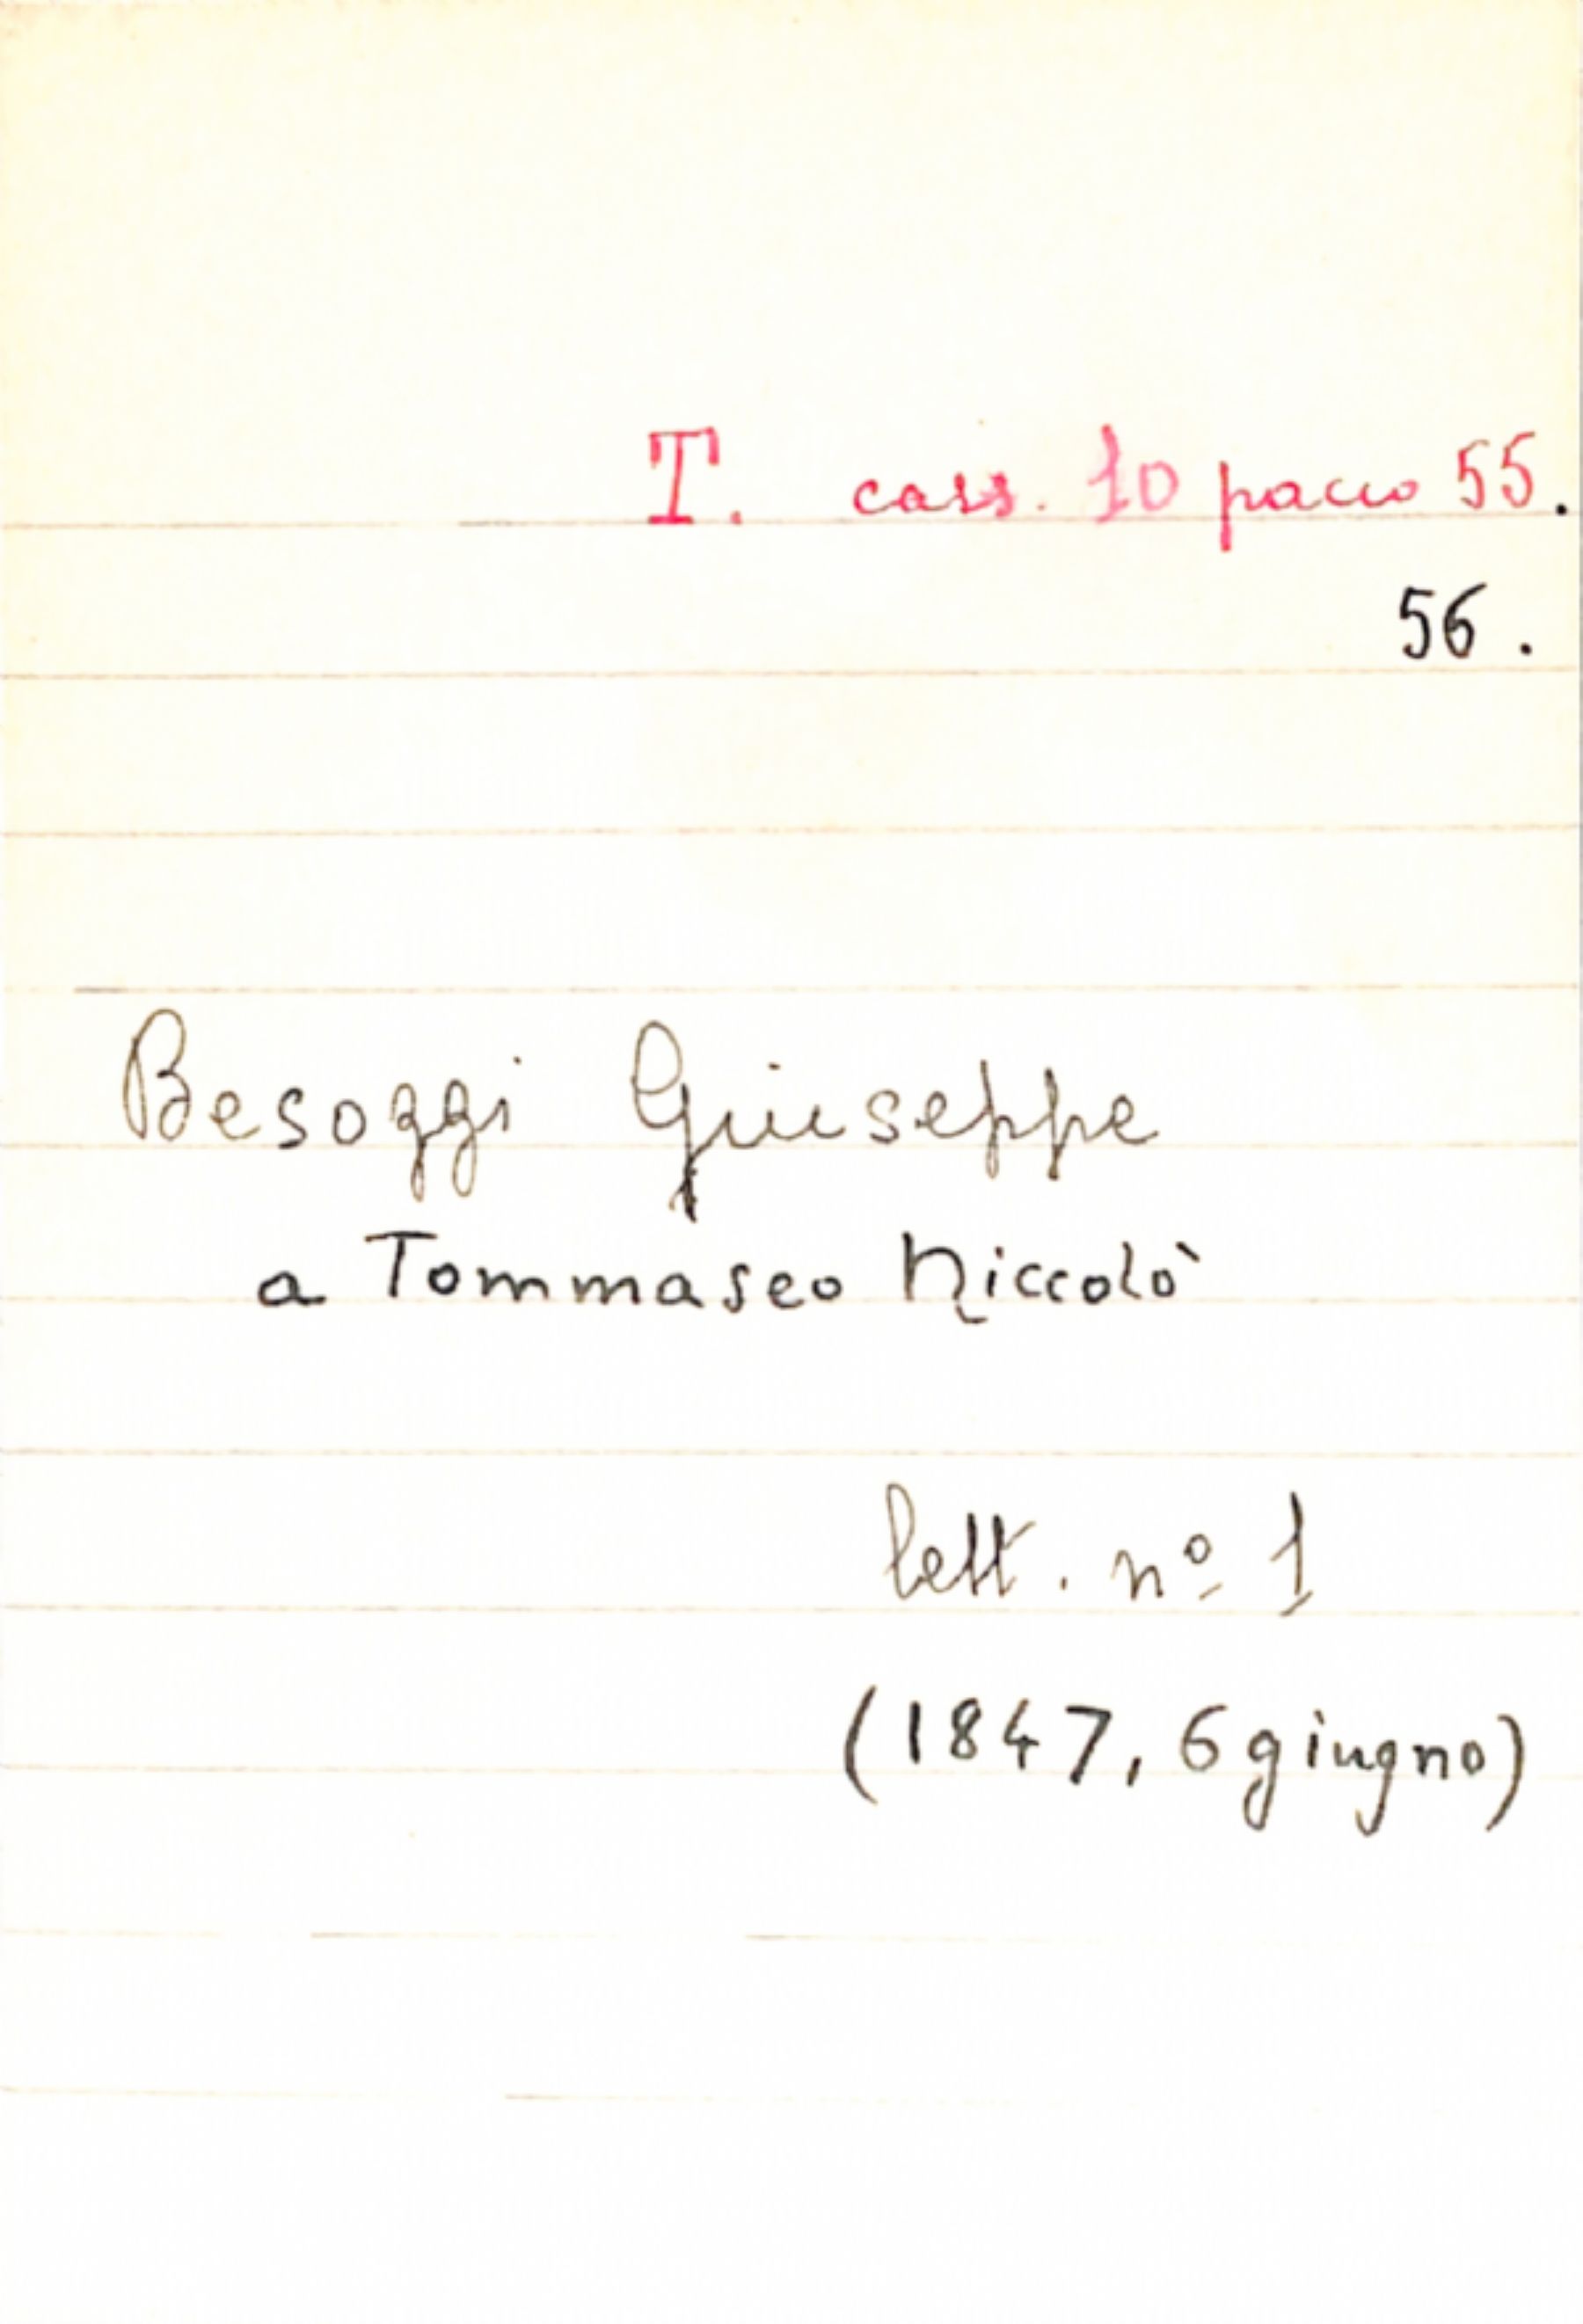 T. cass. 10 pacco 55.
56.
Besoggi Giuseppe
a Tommaseo Niccolò
lett. nº 1
(1847, 6 giugno)